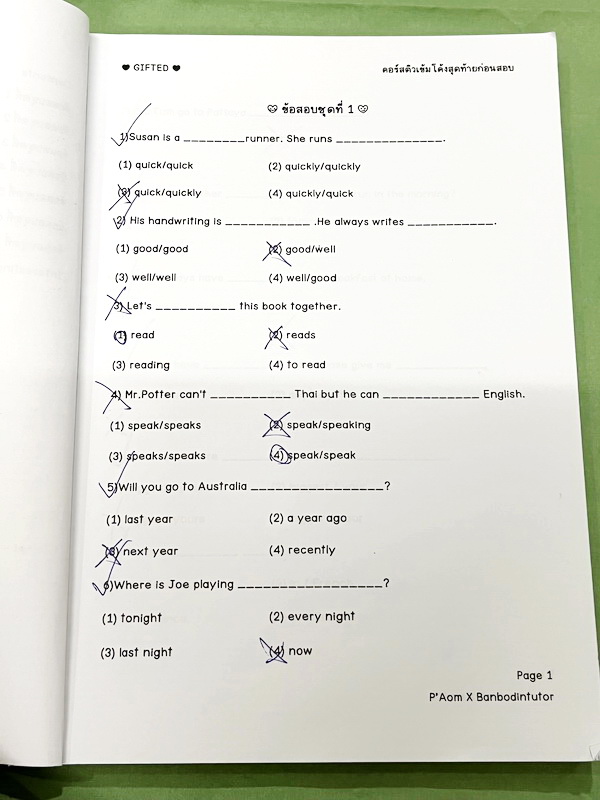 ♥ GIFTED ♥ คอร์สติวเข้มโค้งสุดท้ายก่อนสอบ
ข้อสอบชุดที่ 1
1)Susan is a ________runner. She runs ______________.
(1) quick/quick (2) quickly/quickly
(3) quick/quickly (4) quickly/quick
2) His handwriting is ___________ .He always writes ___________.
(1) good/good (2) good/well
(3) well/well (4) well/good
3) Let's __________ this book together.
(1) read (2) reads
(3) reading (4) to read
4) Mr.Potter can't __________ Thai but he can ____________ English.
(1) speak/speaks (2) speak/speaking
(3) speaks/speaks (4) speak/speak
5)Will you go to Australia ________________?
(1) last year (2) a year ago
(3) next year (4) recently
6)Where is Joe playing _________________?
(1) tonight (2) every night
(3) last night (4) now
Page 1
P'Aom X Banbodintutor